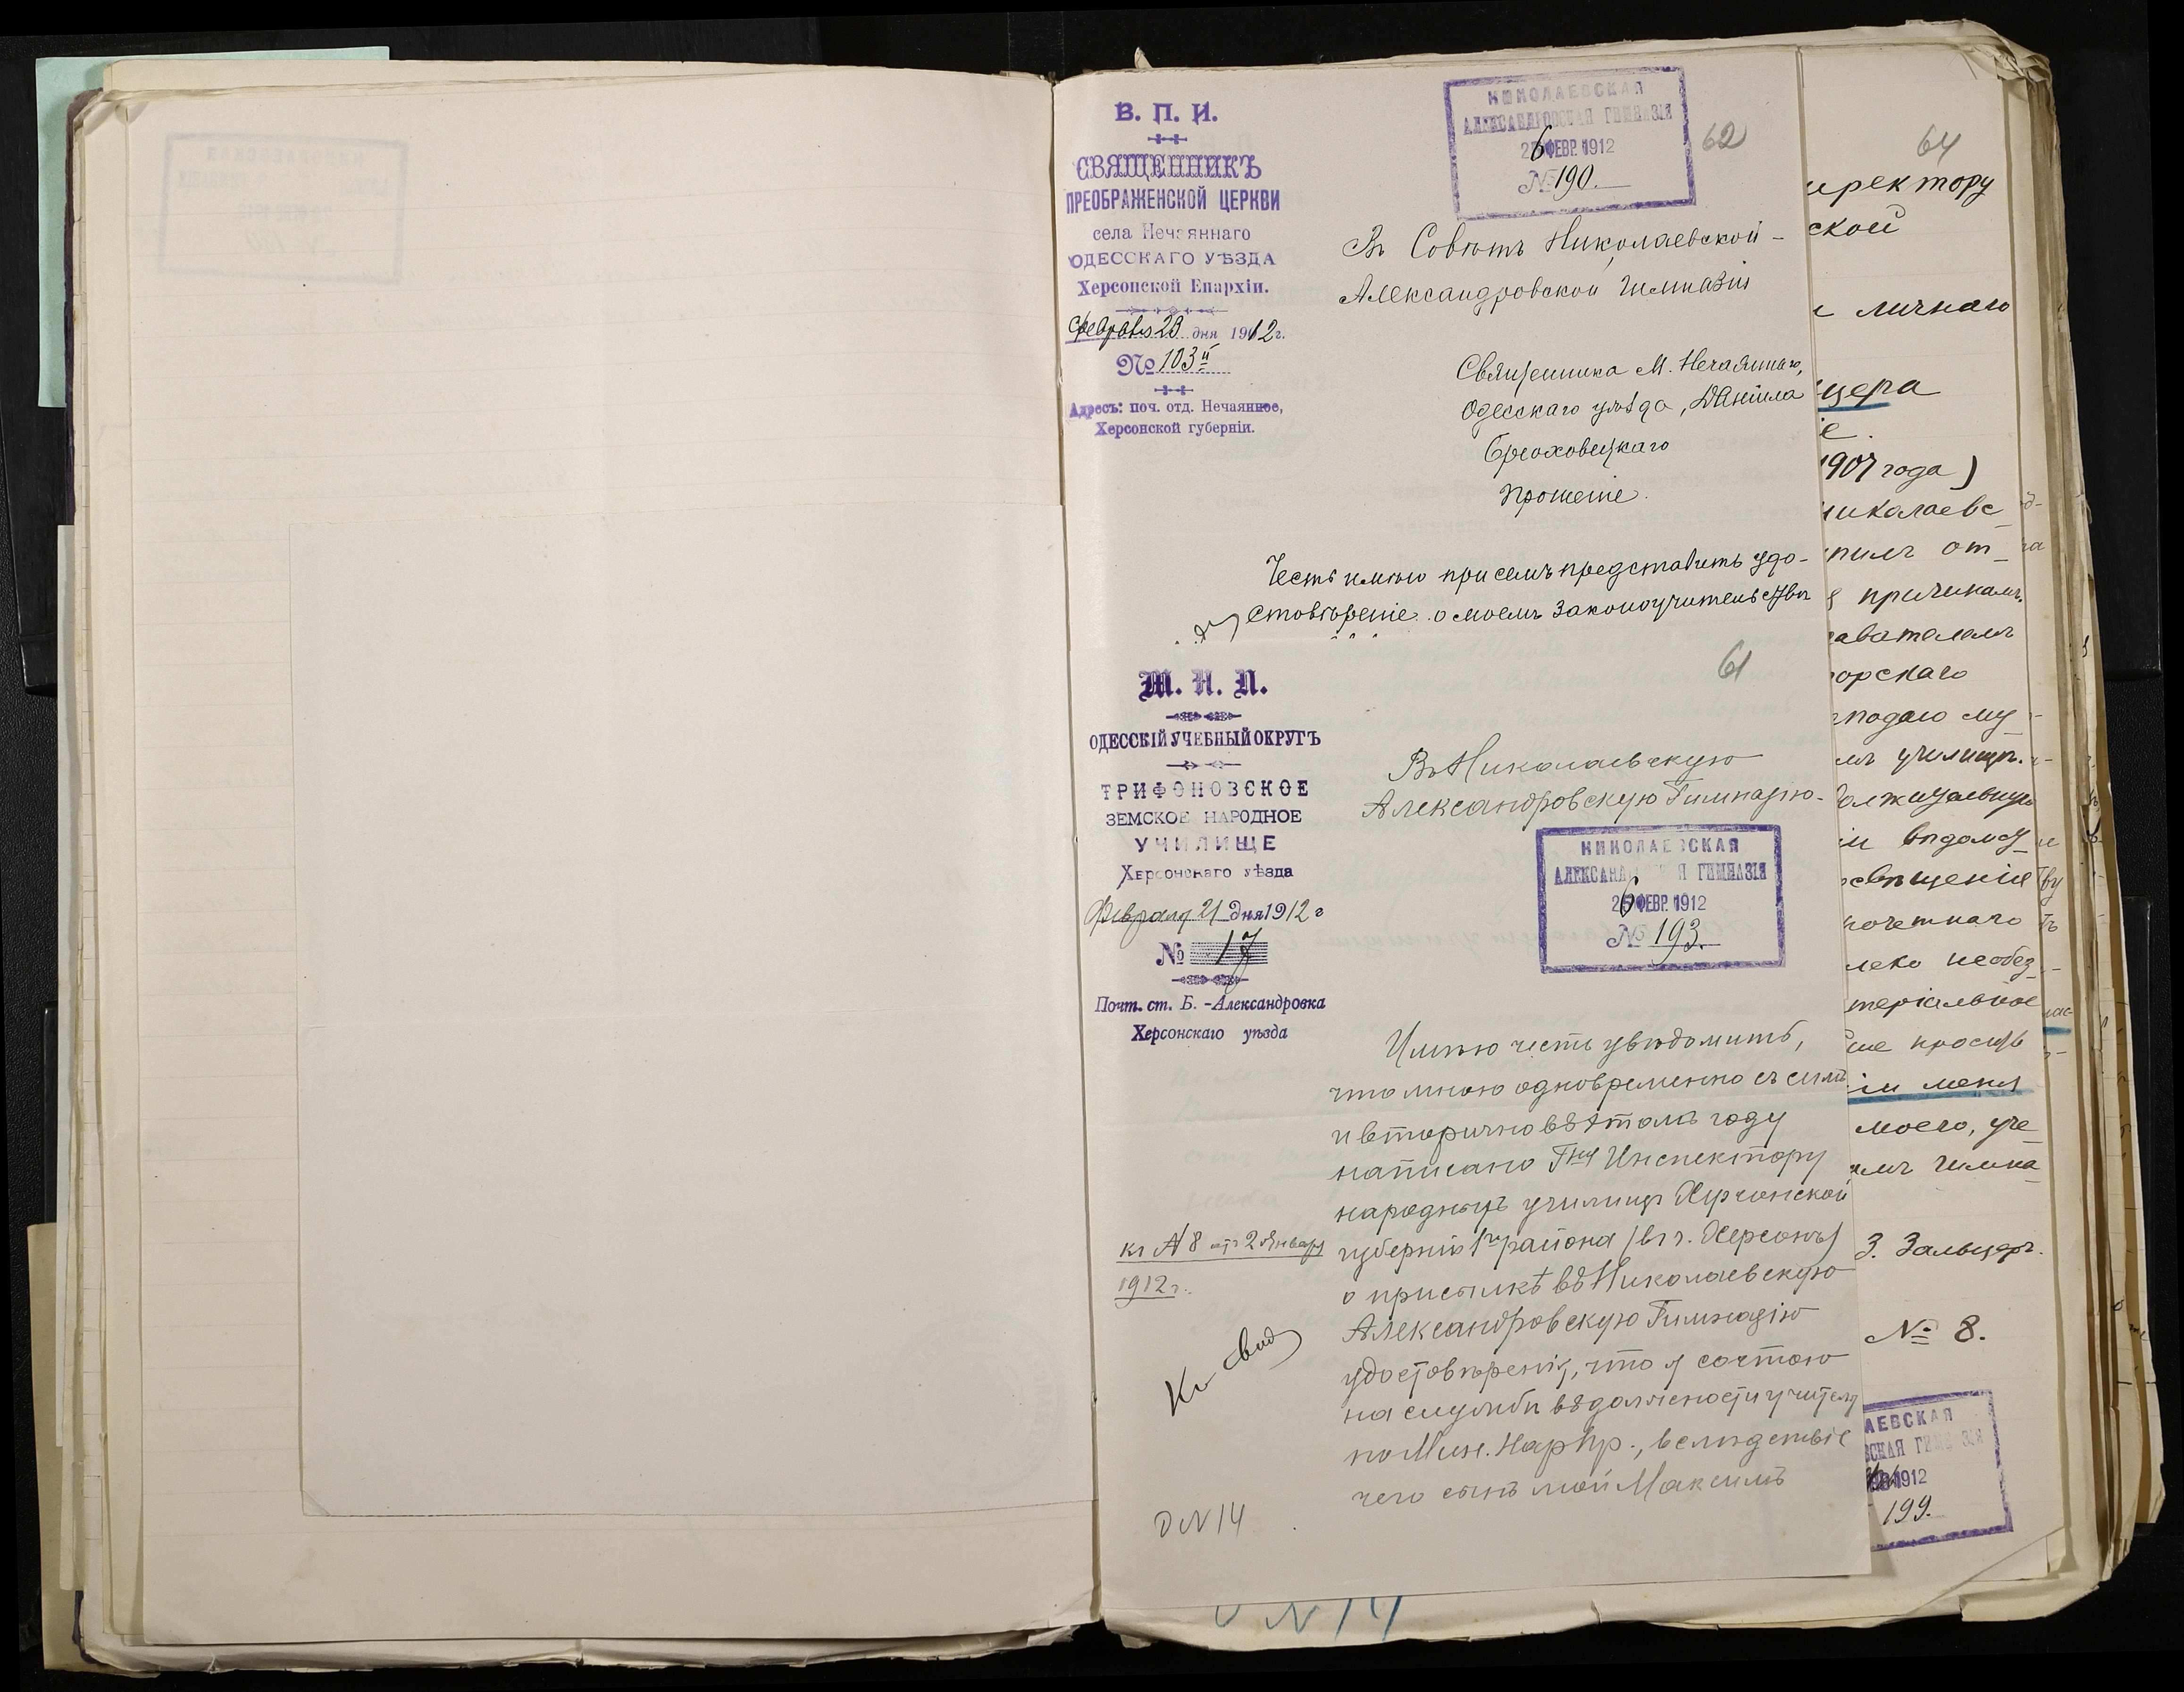 В. П. И.
СВЯЩЕННИКЪ
ПРЕОБРАЖЕНСКОЙ ЦЕРКВИ
села Нечаяннаго
ОДЕССКАГО УѢЗДА
Херсонской Епархіи.
Февраля 23 дня 1912г.
№ 103й
Адресъ: поч. отд. Нечаянное,
Херсонской губерніи.
НИКОЛАЕВСКАЯ
АЛЕКСАНДРОВСКАЯ ГИМНАЗІЯ
26 ФЕВР. 1912
№ 190.
62
Въ Совѣтъ Николаевской-
Александровской гимназіи
Священника М. Нечаяннаго,
Одесскаго уѣзда, Даніила
Брюховецкаго
Прошеніе.
Честь имѣю при семъ представить удо-
стовѣреніе о моемъ законоучительствѣ
61
М. Н. П.
ОДЕССКІЙ УЧЕБНЫЙ ОКРУГЪ
ТРИФОНОВСКОЕ
ЗЕМСКОЕ НАРОДНОЕ
УЧИЛИЩЕ
Херсонскаго уѣзда
Февраля 21 дня 1912 г
№ 17
Почт. ст. Б.-Александровка
Херсонскаго уѣзда
Въ Николаевскую
Александровскую Гимназію.
НИКОЛАЕВСКАЯ
АЛЕКСАНД Я ГИМНАЗІЯ
26 ФЕВР. 1912
№ 193.
Имѣю честь увѣдомить,
что мною одновременно съ симъ
и вторично въ этомъ году
написано Гну Инспектору
народныхъ училищъ Херсонской
губерніи 1го района (въ г. Херсонѣ)
о присылкѣ въ Николаевскую
Александровскую Гимназію
удостовѣренія, что я состою
на службѣ въ должности учителя
по Мин. Нар Пр., вслѣдствіе
чего сынъ мой Максимъ
къ № 8 отъ 2 Января
1912 г.
Къ свѣд
D N 14
N 14
64
иректору
ской
личнаго
цера
1907 года)
николаевс
пилъ от
причинамъ
авателемъ
орскаго
подаю му
училищ.
олжительную
вѣдомс
свѣщенія
почетнаго
леко необез
теріальное
ше просить
іи меня
моего, уче
имъ гимна
З. Зальцеръ.
№ 8.
АЕВСКАЯ
ВСКАЯ ГИМ ЗІЯ
1912
199.